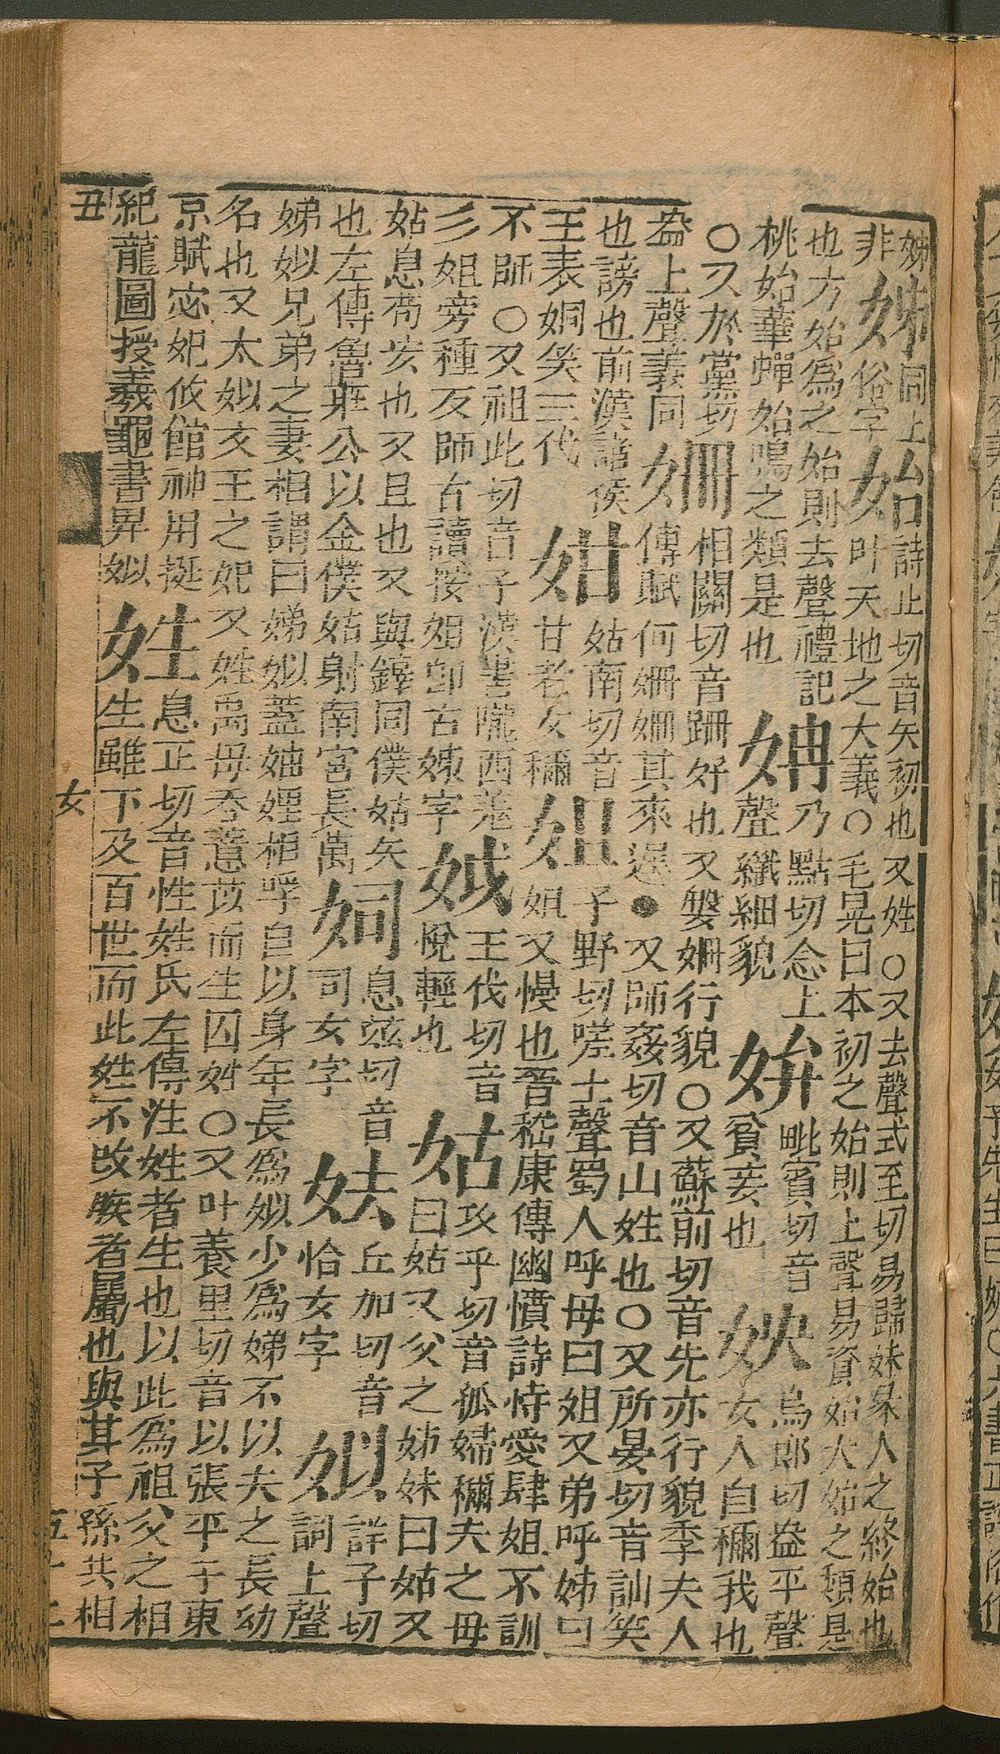 姊
非
姊
同上
俗字
始
詩止切音矢初也又姓○又去聲式至切易歸妹彖人之終始也
叶天地之大義○毛晃曰本初之始則上聲易資始大始之類是
也方始爲之始則去聲禮記
桃始華蟬始鳴之類是也
姌
乃點切念上
聲纖細貌
姘
毗賓切音
貧妾也
姎
烏郎切盎平聲
女人自稱我也
○又於黨切
盎上聲義同
姍
相關切音跚好也又媻姍行貌○又蘇前切音先亦行貌李夫人
傳賦何姍姍其來遲●又師姦切音山姓也○又所晏切音訕笑
也謗也前漢諸侯
王表姍笑三代
姏
姑南切音
甘老女稱
姐
子野切嗟上聲蜀人呼母曰姐又弟呼姊曰
姐又慢也晉嵇康傳幽憤詩恃愛肆姐不訓
不師○又祖此切音子漢書隴西羌
彡姐旁種反師古讀按姐卽古姊字
王伐切音
悅輕也
姑
攻乎切音孤婦稱夫之母
曰姑又父之姊妹曰姑又
姑息苟安也又且也又與鐸同僕姑矢
也左傳魯莊公以金僕姑射南宮長萬
㚸
息茲切音
司女字
丘加切音
恰女字
姒
詳子切
詞上聲
娣姒兄弟之妻相謂曰娣姒蓋妯娌相呼自以身年長爲姒少爲娣不以夫之長幼
名也又太姒文王之妃又姓禹母吞薏苡而生因姓○又叶養里切音以張平子東
京賦宓妃攸館神用挺
紀龍圖授羲龜書畀姒
姓
息正切音性姓氏左傳注姓者生也以此爲祖父之相
生雖下及百世而此姓不改族者屬也與其子孫共相
丑
女
五十二